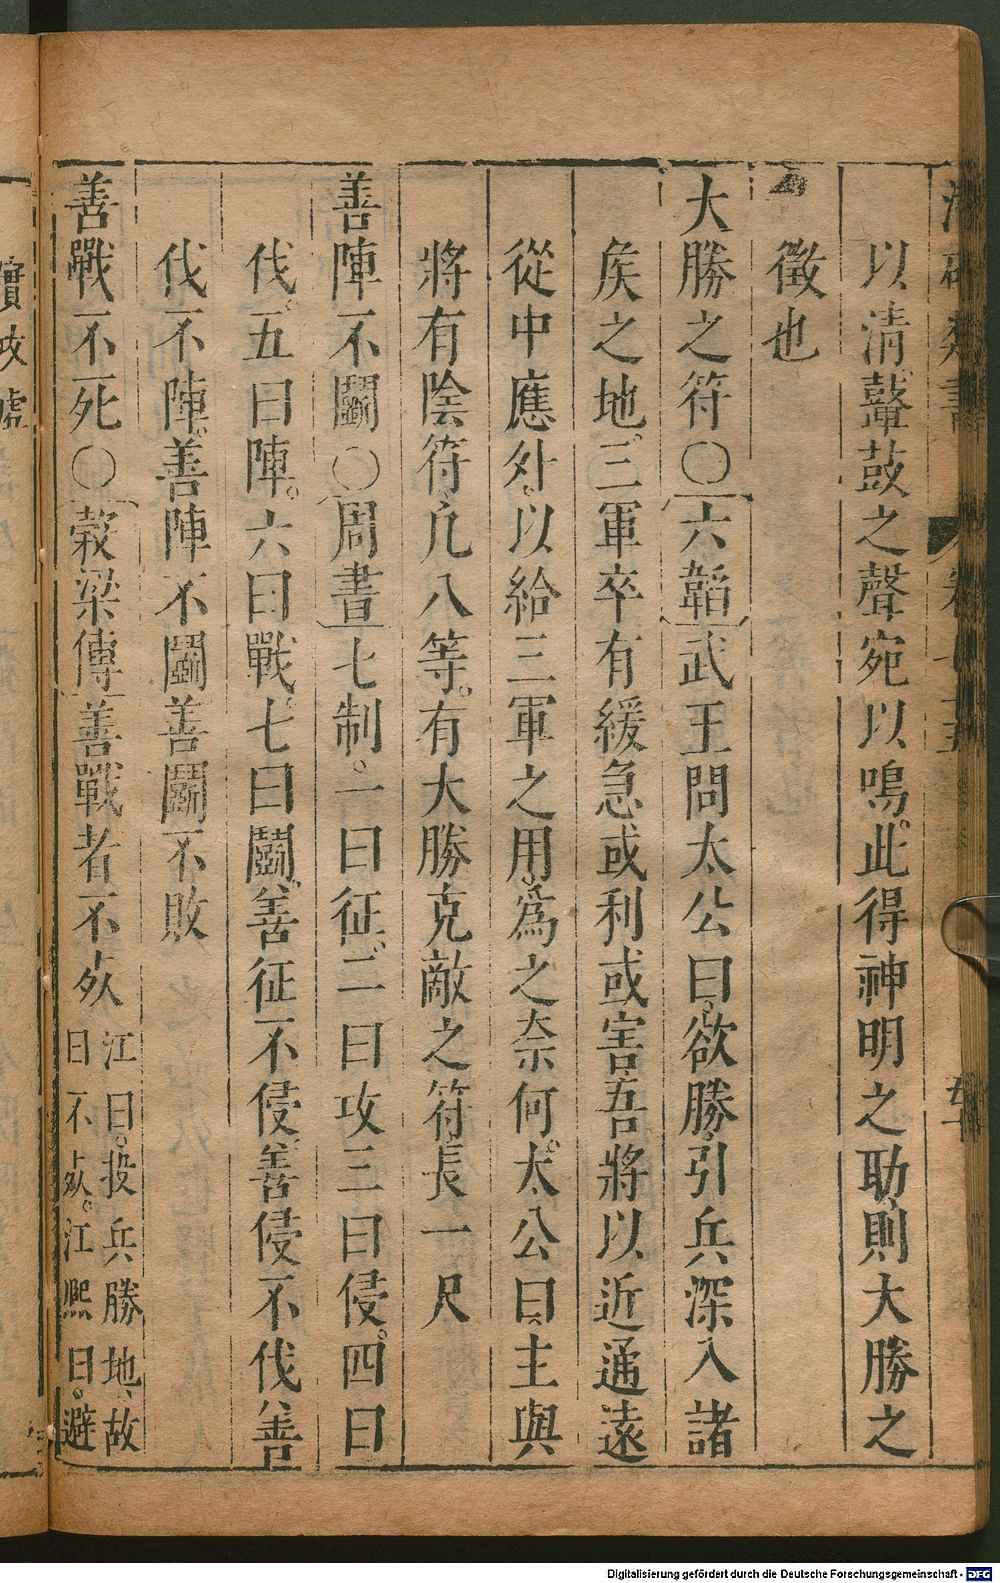 以清鼙鼓之聲宛以鳴此得神明之助則大勝之
徵也
大勝之符〇六韜武王問太公曰欲勝引兵深入諸
矦之地三軍卒有緩急或利或害吾將以近通遠
從中應外以給三軍之用爲之奈何太公曰主與
將有陰符凡八等有大勝克敵之符長一尺
善陣不鬭〇周書七制一曰征二曰攻三曰侵四曰
伐五曰陣六曰戰七曰鬭善征不侵善侵不伐善
伐不陣善陣不鬭善鬭不敗
善戰不死〇榖梁傳善戰者不𣦸
江曰投兵勝地故
曰不𣦸江熙曰避
實攻虛
Digitalisierung gefördert durch die Deutsche Forschungsgemeinschaft - DFG